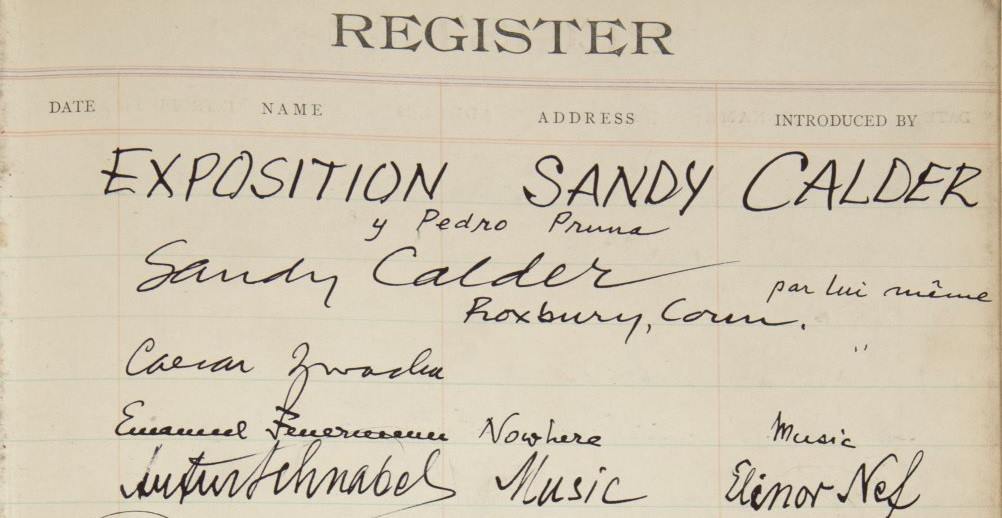 REGISTER
DATE NAME ADDRESS INTRODUCED BY
EXPOSITION SANDY CALDER
y Pedro Pruna
Sandy Calder par lui même
Roxbury, Conn. "
Caesar
Emanuel Feuermann Nowhere Music
Artur Schnabel Music Elinor Nef